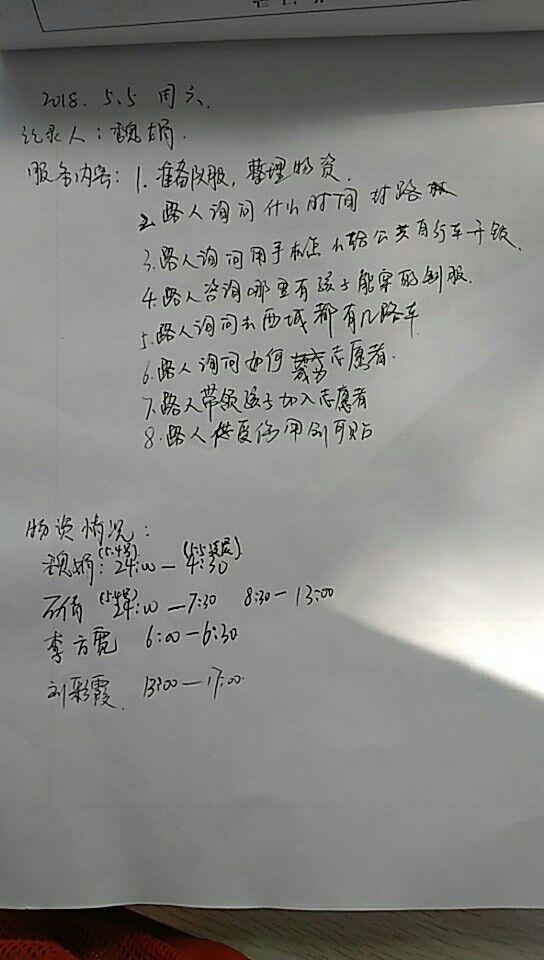 2018.5.5 周六.
记录人：魏娟.
服务内容：1.准备队服，整理物资
2.路人询问什么时间封路
3.路人询问用手机怎么给公共自行车开锁.
4.路人咨询哪里有孩子能穿的制服.
5.路人询问去西城都有几路车
6.路人询问如何成为志愿者.
7.路人带领孩子加入志愿者
8.路人使用创可贴
物资情况：
(5.4号) (5.5凌晨)
魏娟：24:00—4:30
(5.4号)
石倩 24:00—7:30 8:30—13:00
李方霓 6:00—6:30
刘彩霞 13:00—17:00.